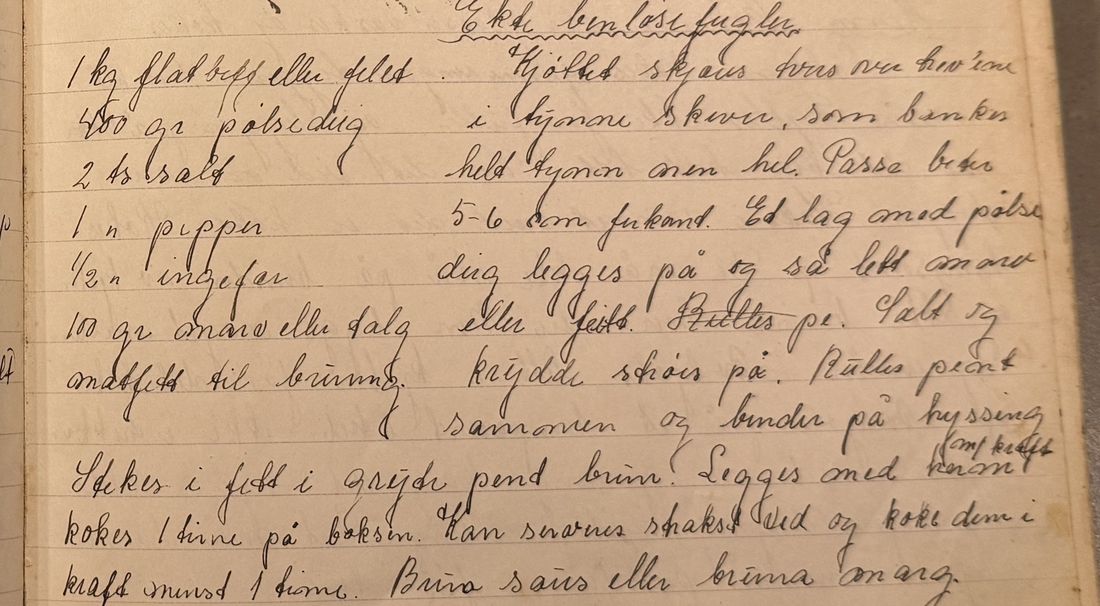 Ekte benløse fugler
1 kg flatbiff eller filet
400 gr pølsedeig
2 ts salt
1 " pepper
1/2 " ingefær
100 gr marv eller talg
matfett til bruning.
Kjøttet skjæres tvers over trev'ene
i tynne skiver, som bankes
helt tynn men hel. Passe biter
5-6 cm firkant. Et lag med pølse
deig legges på og så litt marv
eller fett. Rulles pe. Salt og
krydde strøis på. Rulles pent
sammen og binder på hyssing
Stekes i fett i gryte pent brun. Legges med m/ kraft
kokes 1 time på boksen. Kan serveres straks ved og koke dem i
kraft minst 1 time. Brun saus eller bruna marg.